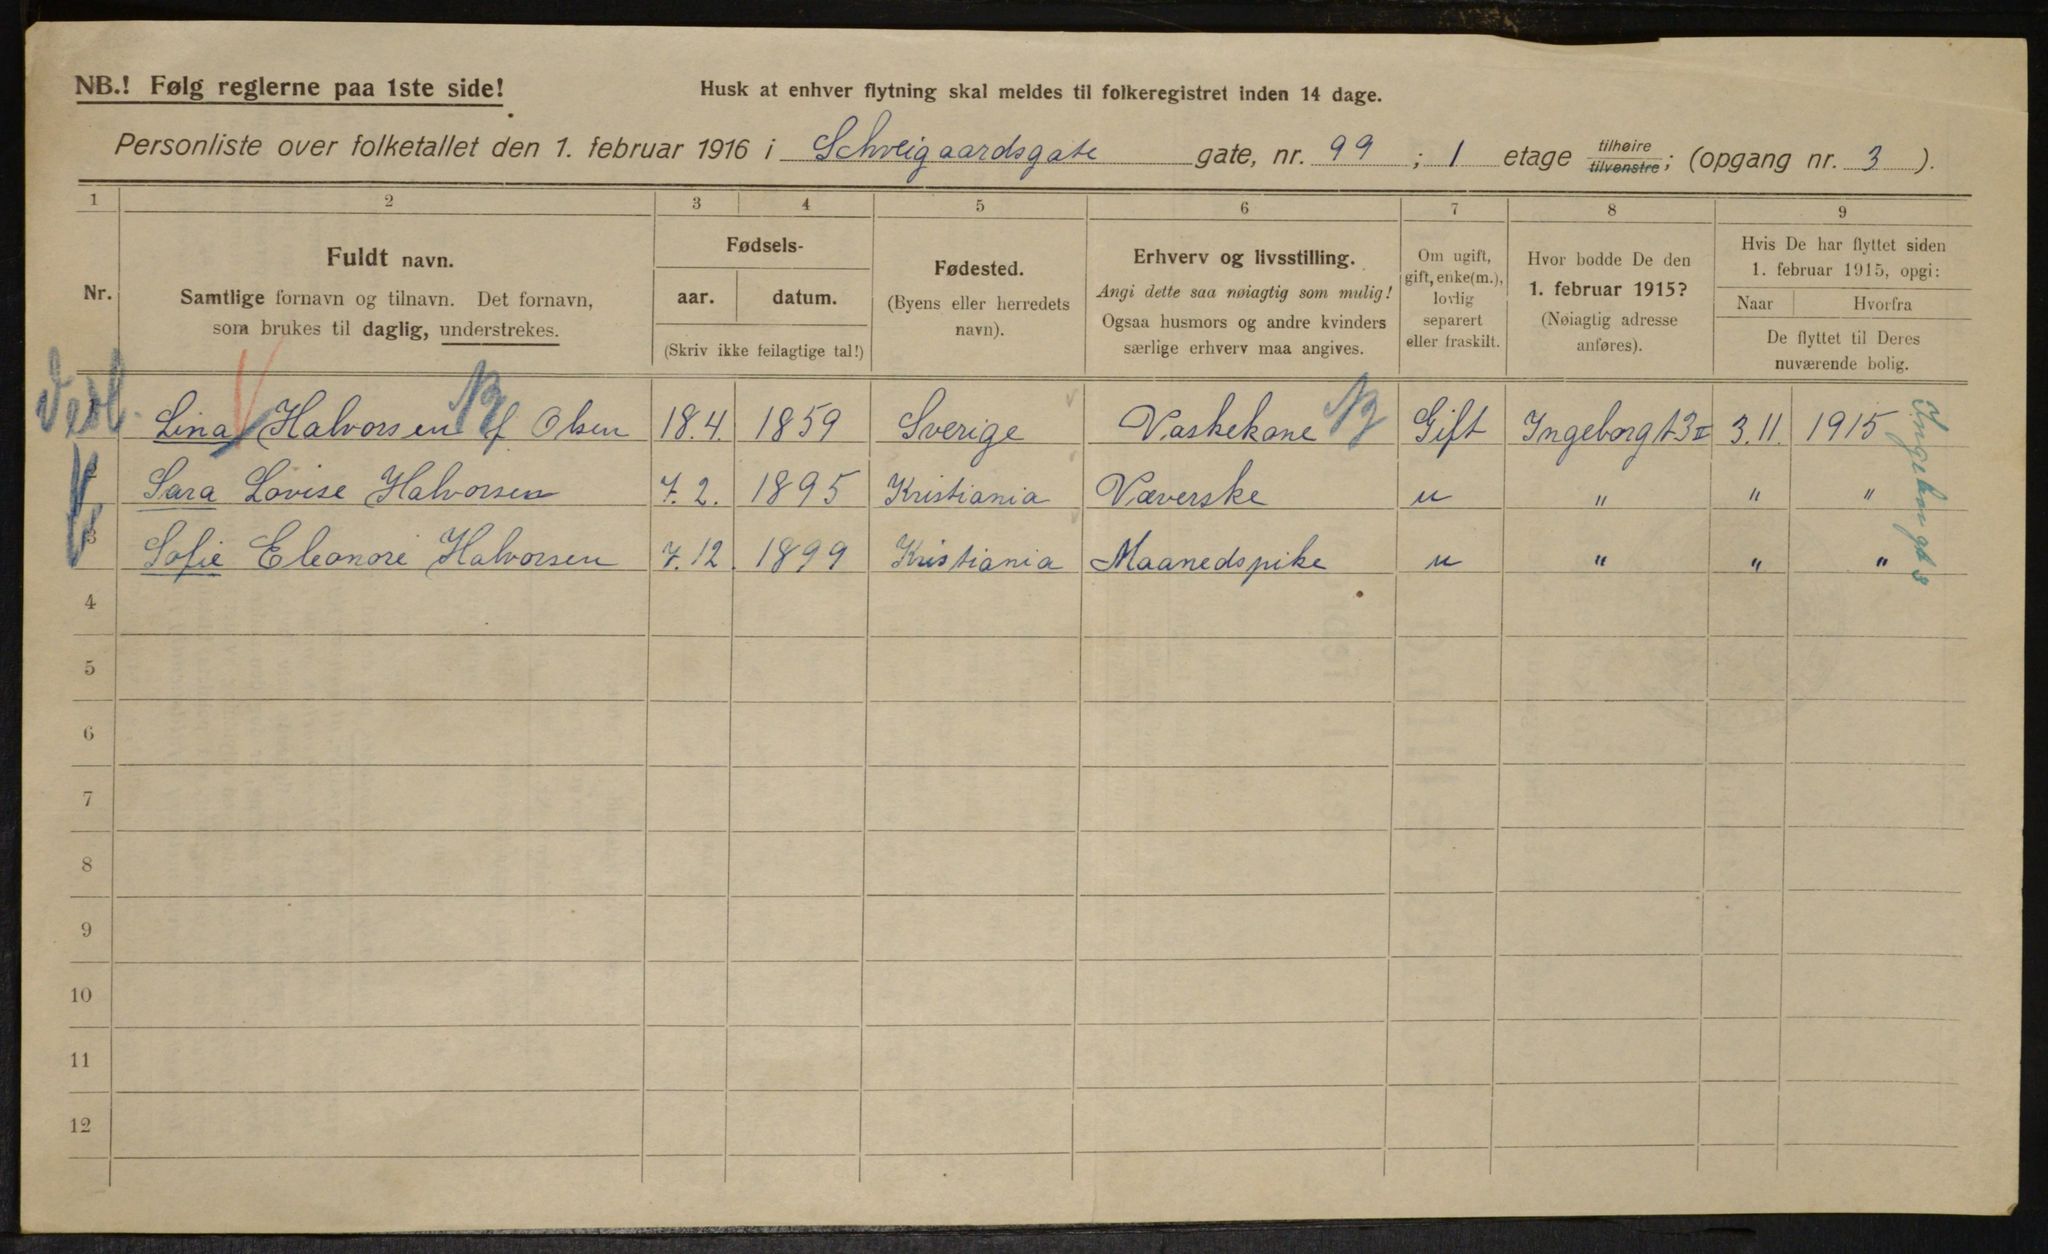 NB.! Følg reglerne paa 1ste side!
Husk at enhver flytning skal meldes til folkeregistret inden 14 dage.
Personliste over folketallet den 1. februar 1916 i Schveigaardsgate gate, nr. 99 ; 1 etage tilhøire tilvenstre; (opgang nr. 3 ).
1 2 3 4 5 6 7 8 9
Nr.
Fuldt navn.
Samtlige fornavn og tilnavn. Det fornavn,
som brukes til daglig, understrekes.
Fødsels-
aar. datum.
(Skriv ikke feilagtige tal!)
Fødested.
(Byens eller herredets
navn).
Erhverv og livsstilling.
Angi dette saa nøiagtig som mulig!
Ogsaa husmors og andre kvinders
særlige erhverv maa angives.
Om ugift,
gift, enke(m.),
lovlig
separert
eller fraskilt.
Hvor bodde De den
1. februar 1915?
(Nøiagtig adresse
anføres).
Hvis De har flyttet siden
1. februar 1915, opgi:
Naar Hvorfra
De flyttet til Deres
nuværende bolig.
Lina Halvorsen f Olsen 18.4. 1859 Sverige Vaskekone Gift Ingeborgt 3 II 3.11. 1915
Sara Lovise Halvorsen 7.2. 1895 Kristiania Væverske u " " "
3 Sofie Eleonore Halvorsen 7.12. 1899 Kristiania Maanedspike u " " "
Ingeborg gt 3
4
5
6
7
8
9
10
11
12